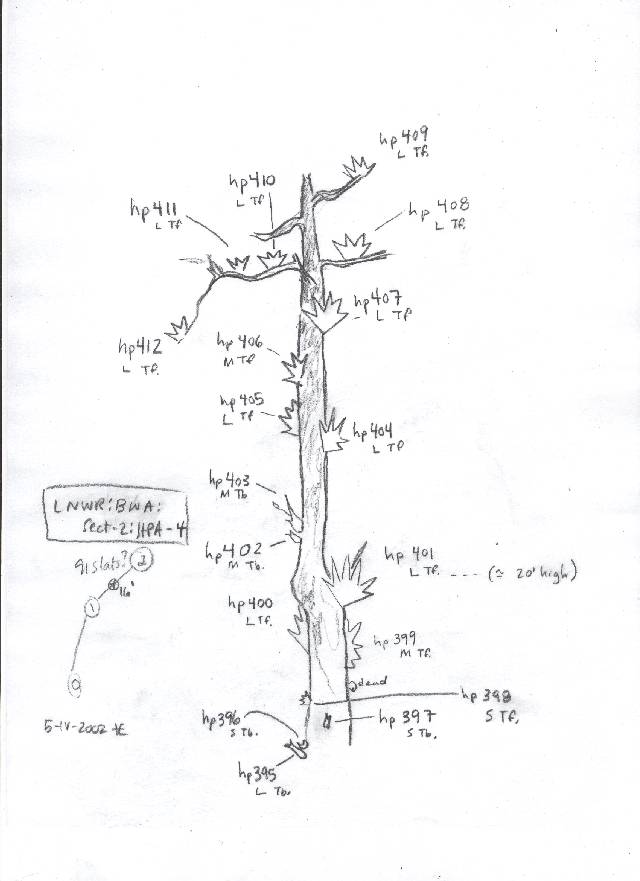 hp 409
L Tf.
hp 410
L Tf
hp 411
L Tf
hp 408
L Tf.
hp 407
L Tf
hp 412
L Tf.
hp 406
M Tf
hp 405
L Tf
hp 404
L Tf
hp 403
M Tb
LNWR:BWA:
Sect-2:HPA-4
hp 402
M Tb.
hp 401
L Tf. ---- (≃ 20' high)
2
16'
1
hp 400
L Tf.
hp 399
M Tf.
dead
0
hp 398
S Tf.
hp 396
S Tb.
hp 397
S Tb.
5-IV-2002
hp 395
L Tb.